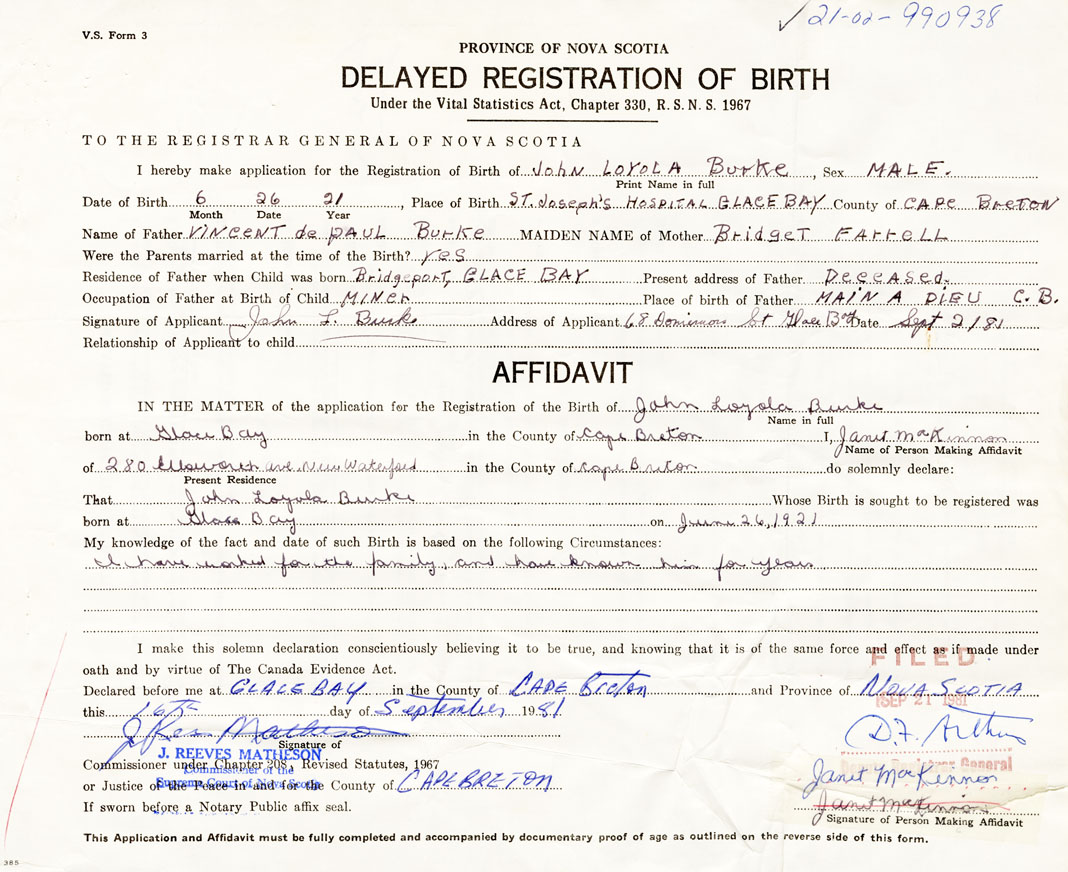 ✓ 21-02-990938
V.S. Form 3
PROVINCE OF NOVA SCOTIA
DELAYED REGISTRATION OF BIRTH
Under the Vital Statistics Act, Chapter 330, R.S.N.S. 1967
TO THE REGISTRAR GENERAL OF NOVA SCOTIA
I hereby make application for the Registration of Birth of John LOYOLA Burke, Sex MALE.
Print Name in full
Date of Birth 6 26 21, Place of Birth ST. Joseph's HOSPITAL GLACE BAY County of CAPE BRETON
Month Date Year
Name of Father VINCENT de PAUL Burke MAIDEN NAME of Mother Bridget FARRELL
Were the Parents married at the time of the Birth? yes
Residence of Father when Child was born Bridgeport, GLACE BAY Present address of Father Deceased.
Occupation of Father at Birth of Child MINER Place of birth of Father MAIN A DIEU C.B.
Signature of Applicant John L. Burke Address of Applicant 68 Dominion St Glace Bay Date Sept 2/81
Relationship of Applicant to child
AFFIDAVIT
IN THE MATTER of the application for the Registration of the Birth of John Loyola Burke
Name in full
born at Glace Bay in the County of Cape Breton I, Janet MacKinnon
Name of Person Making Affidavit
of 280 Ellsworth ave. New Waterford in the County of Cape Breton do solemnly declare:
Present Residence
That John Loyola Burke Whose Birth is sought to be registered was
born at Glace Bay on June 26, 1921
My knowledge of the fact and date of such Birth is based on the following Circumstances:
I have worked for the family, and have known him for years
I make this solemn declaration conscientiously believing it to be true, and knowing that it is of the same force and effect as if made under
oath and by virtue of The Canada Evidence Act.
FILED
Declared before me at GLACE BAY in the County of CAPE Breton and Province of NOVA SCOTIA
SEP 21 1981
this 16th day of September 1981
J Reeves Matheson
Signature of
J. REEVES MATHESON
Commissioner under Chapter 208, Revised Statutes, 1967
Commissioner of the
Supreme Court of Nova Scotia
or Justice of the Peace in and for the County of CAPE BRETON
If sworn before a Notary Public affix seal.
Deputy Registrar General
Janet MacKinnon
Janet MacKinnon
Signature of Person Making Affidavit
This Application and Affidavit must be fully completed and accompanied by documentary proof of age as outlined on the reverse side of this form.
385